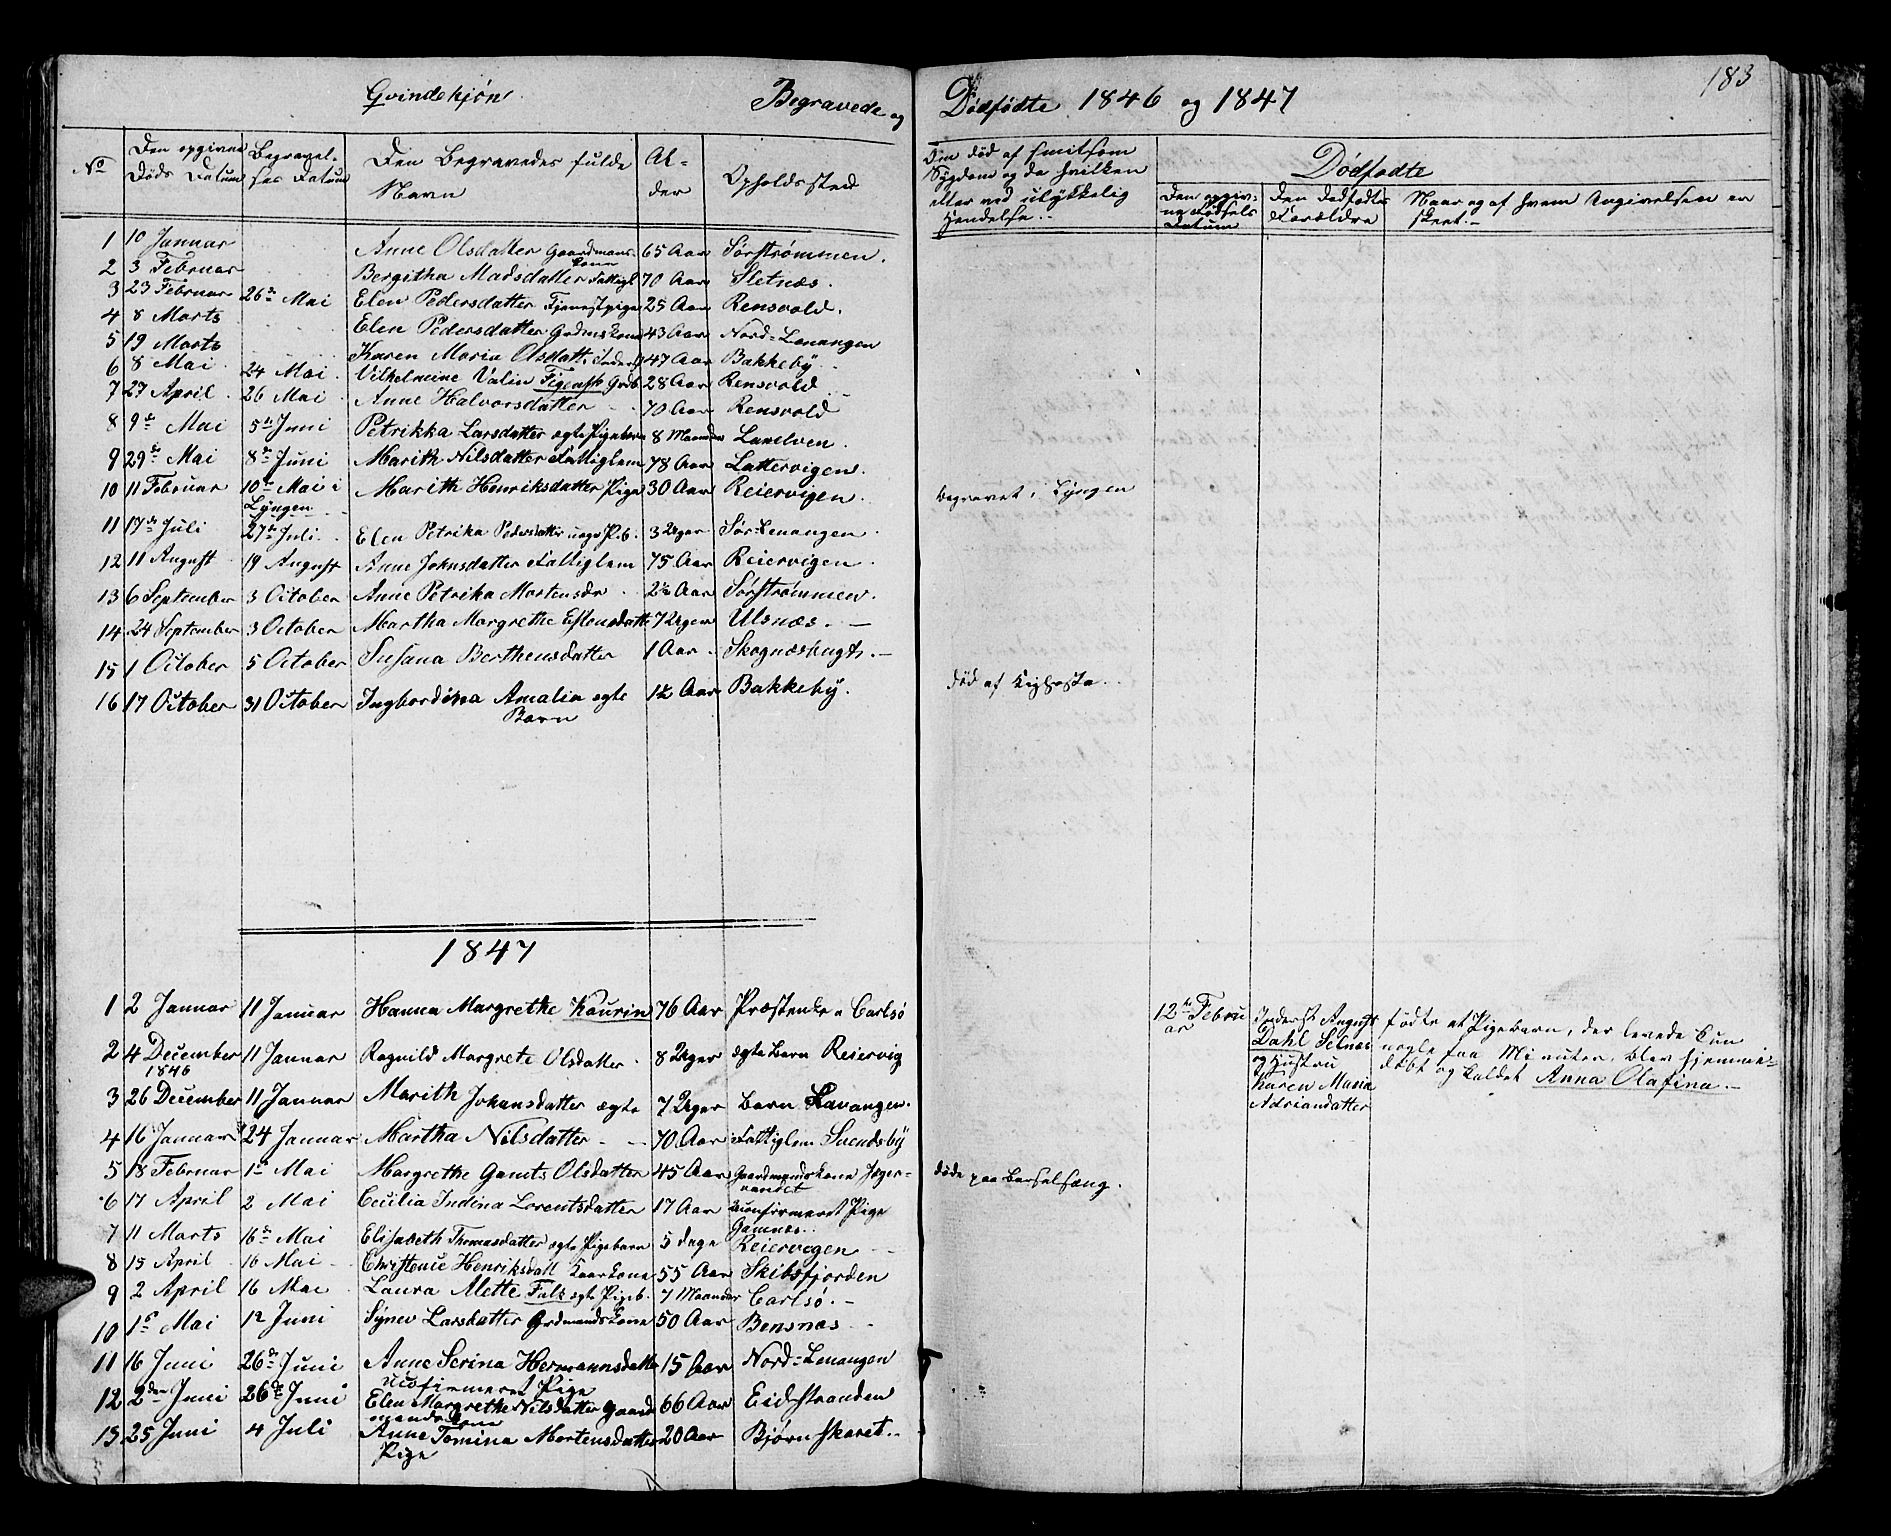 Qvindekjøn Begravede og Dødfødte 1846 og 1847 183
No
Den opgivne Døds Datum
Begravelses Datum
Den Begravedes fulde Navn
Alder
Opholdssted
Den død af smitsom
Sygdom og da hvilken
eller ved ulykkelig
Hendelse.
Dødfødte
Den opgivne Fødsels Datum
Den dødfødtes Forældre
Naar og af hvem Angivelsen er skeet.
1 10 Januar Anne Olsdatter Gaardmans kone 65 Aar Sørstrømmen.
2 3 Februar Bergitha Madsdatter Fattigl 70 Aar Sletnæs.
3 23 Februar 26de Mai Elen Pedersdatter Tjenestpige 25 Aar Rensvold.
4 8 Marts Elen Pedersdatter Grdmskone 43 Aar Nord-Lenangen
5 19 Marts Karen Maria Olsdatt. Inders 47 Aar Bakkeby.
6 8 Mai 24 Mai Vilhelmine Valin Figensk Grdb 28 Aar Rensvold
7 27 April 26 Mai Anne Halvorsdatter 70 Aar Rensvold
8 9de Mai 5te Juni Petrikka Larsdatter ægte Pigebarn 8 Maaneder Lanelven.
9 29de Mai 8de Juni Marith Nilsdatter Fattiglem 78 Aar Lattervigen.
10 11 Februar 10de Mai i Lyngen Marith Henriksdatter Pige 30 Aar Reiervigen. Begravet i Lyngen
11 17de Juli 27de Juli Elen Petrika Pedersdatter uægt P.b. 3 Uger Sør-Lenangen.
12 11 August 19 August Anne Johnsdatter Fattiglem 75 Aar Reiervigen.
13 6 September 3 October Anne Petrika Mortensdr 2½ Aar Sørstrømmen.
14 24 September 3 October Martha Margrethe Estensdatt 7 Uger Ulsnæs.
15 1 October 5 October Susana Berthensdatter 1 Aar Skognæsbugt.
16 17 October 31 October Ingbordina Amalia ægte Barn 1½ Aar Bakkeby. død af Kighoste
1847
1 2 Januar 11 Januar Hanna Margrethe Kaurin 76 Aar Præstenke Carlsø
2 4 December 1846 11 Januar Ragnild Margrete Olsdatter 8 Uger ægte Barn Reiervig
3 26 December 11 Januar Marith Johansdatter ægte 7 Uger Barn Lavangen.
4 16 Januar 24 Januar Martha Nilsdatter 70 Aar Fattiglem Svendsby
5 18 Februar 1te Mai Margrethe Gamts Olsdatter 45 Aar Gaardmandskone Jægervandet døde paa Barselsæng.
6 17 April 2 Mai Cecilia Indina Lorentsdatter 17 Aar Confirmeret Pige Gamnæs
7 11 Marts 16de Mai Elisabeth Thomasdatter ægte Pigebarn 5 dage Reiervigen
8 15 April 16 Mai Christense Henriksdatt Kaarkone 55 Aar Skibsfjorden
9 2 April 16 Mai Laura Mette Falk ægte Pigeb. 7 Maaneder Carlsø.
10 1te Mai 12 Juni Synev Larsdatter Grdmandskone 50 Aar Bensnæs
11 16 Juni 26de Juni Anne Serina Hermannsdatter ucofirmeret Pige 15 Aar Nord-Lenangen
12 2den Juni 26de Juni Elen Margrethe Nilsdatter Gaardmandskone 66 Aar Eidstranden
13 25 Juni 4 Juli Anne Tomina Mortensdatter Pige 20 Aar Bjørnskaret.
12te Februar
Inderst August
Dahl Selnæs
og Hustru
Karen Maria
Adriandatter
fødte et Pigebarn, der levede kun
nogle faa Minuter, blev hjemme-
døbt og kaldet Anna Olafina.